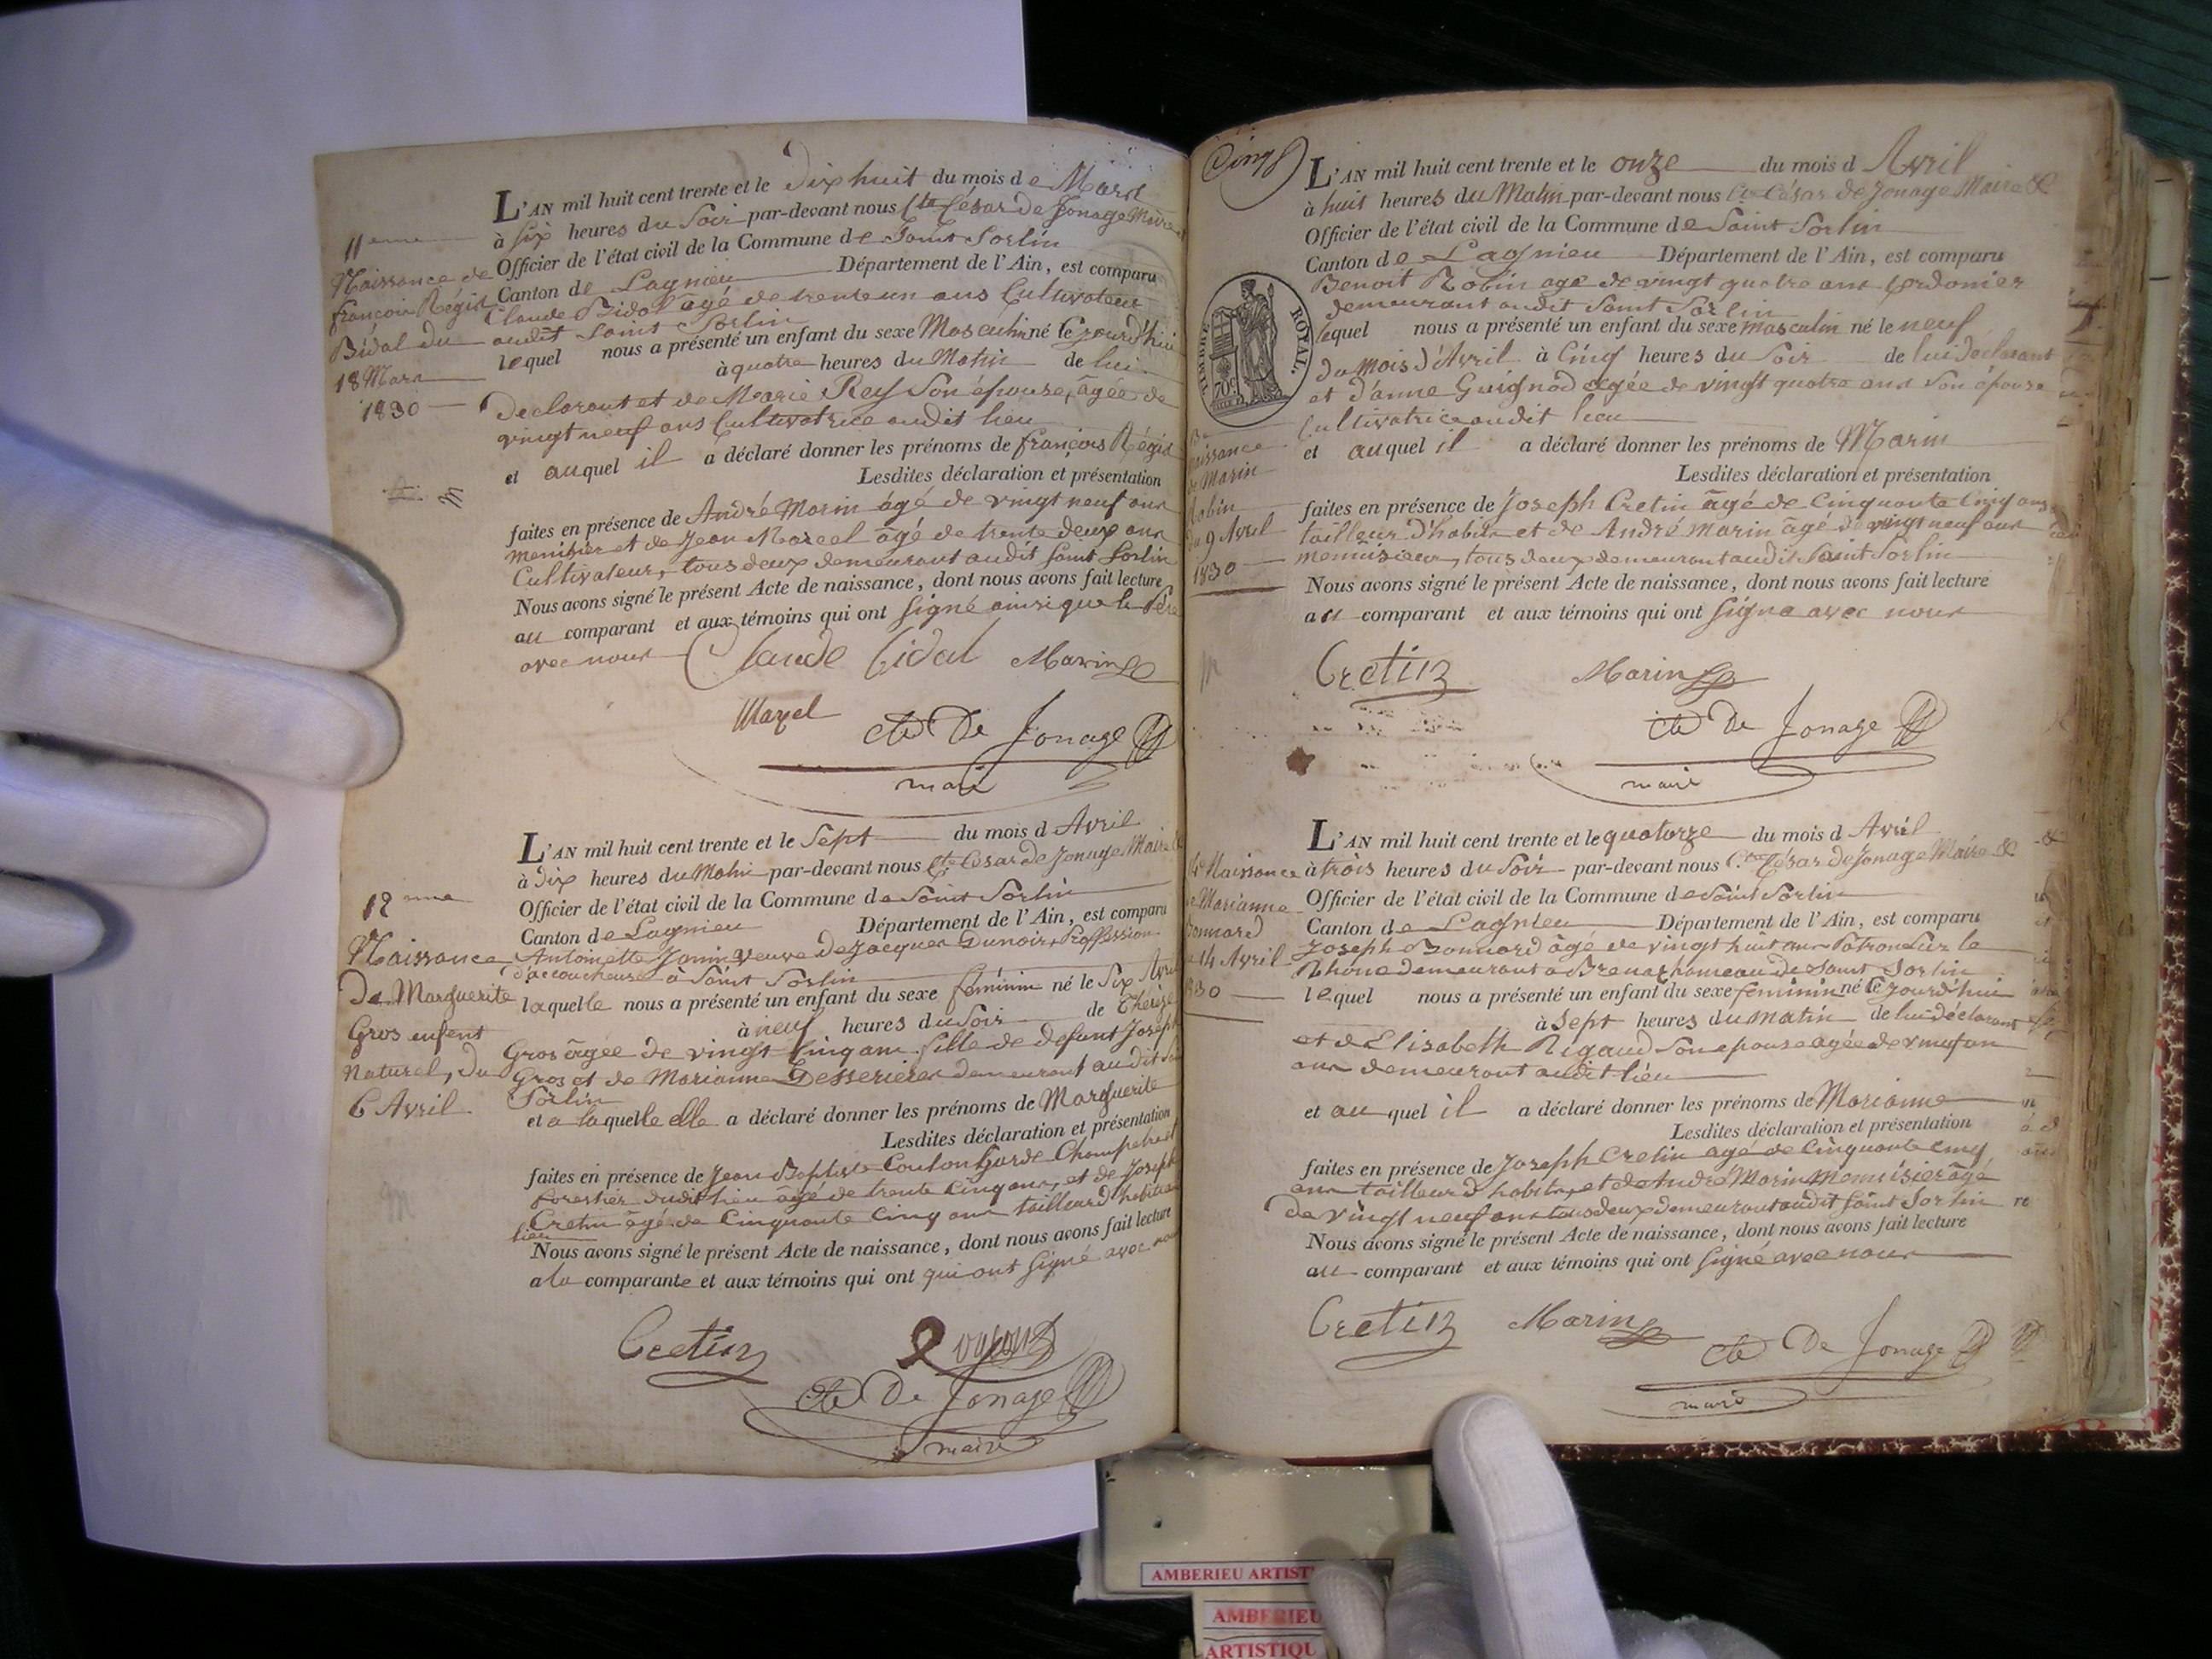 L'AN mil huit cent trente et le dix huit du mois de Mars
à six heures du Soir par-devant nous Cte César de Jonage Maire
Officier de l'état civil de la Commune de Saint Sorlin
Canton de Lagnieu Département de l'Ain, est comparu
Claude Bidal âgé de trente un ans Cultivateur
audit Saint Sorlin
lequel nous a présenté un enfant du sexe Masculin né le jourd'hui
à quatre heures du Matin de lui
Declarant et de Marie Rey Son épouse, agée de
vingt neuf ans Cultivatrice audit lieu
et auquel il a déclaré donner les prénoms de françois Régis
Lesdites déclaration et présentation
faites en présence de André Marin âgé de vingt neuf ans
menisier et de Jean Marcel âgé de trente deux ans
Cultivateur, tous deux demeurant audit Saint Sorlin
Nous avons signé le présent Acte de naissance, dont nous avons fait lecture
au comparant et aux témoins qui ont Signé ainsi que le Père
avec nous
Claude bidal Marin
cte De Jonage
maire
11eme
Naissance de
françois Régis
Bidal du
18 Mars
1830
L'AN mil huit cent trente et le Sept du mois d Avril
à Dix heures du Matin par-devant nous Cte César de Jonage Maire
Officier de l'état civil de la Commune de Saint Sorlin
Canton de Lagnieu Département de l'Ain, est comparu
Antoinette Janin veuve de Jacques Dunoir, Proffession
d'accoucheuse à Saint Sorlin
laquelle nous a présenté un enfant du sexe féminin né le Six Avril
à neuf heures du Soir de Thérèse
Gros âgée de vingt Cinq ans fille de defunt Joseph
Gros et de Marianne Desserieres demeurant audit
Sorlin
et a laquelle elle a déclaré donner les prénoms de Marguerite
Lesdites déclaration et présentation
faites en présence de Jean Baptiste Coulon Garde Champetre et
forestier dudit lieu âgé de trente Cinq ans, et de Joseph
Cretin âgé de Cinquante Cinq ans tailleur d'habits au
lieu
Nous avons signé le présent Acte de naissance, dont nous avons fait lecture
a la comparante et aux témoins qui ont qui ont Signé avec nous
Cretin
cte De Jonage
maire
12eme
Naissance
De Marguerite
Gros enfent
Naturel, du
6 Avril.
Cinq
TIMBRE ROYAL.
70c
L'AN mil huit cent trente et le onze du mois d Avril
à huit heures du Matin par-devant nous Cte César de Jonage Maire &
Officier de l'état civil de la Commune de Saint Sorlin
Canton de Lagnieu Département de l'Ain, est comparu
Benoit Robin age de vingt quatre ans Cordonier
demeurant audit Saint Sorlin
lequel nous a présenté un enfant du sexe masculin né le neuf
du Mois d'Avril à Cinq heures du Soir de lui Déclarant
et d'anne Guignod agée de vingt quatre ans Son épouse
Cultivatrice audit lieu
et auquel il a déclaré donner les prénoms de Marin
Lesdites déclaration et présentation
faites en présence de Joseph Cretin âgé de Cinquante Cinq ans
tailleur d'habits et de André Marin âgé de vingt neuf ans
menuisier, tous deux demeurant audit Saint Sorlin
Nous avons signé le présent Acte de naissance, dont nous avons fait lecture
au comparant et aux témoins qui ont Signé avec nous
Cretin Marin
cte De Jonage
maire
aissance
de Marin
Robin
du 9 Avril
1830
L'AN mil huit cent trente et le quatorze du mois d Avril
à trois heures du Soir par-devant nous Cte César de Jonage Maire &
Officier de l'état civil de la Commune de Saint Sorlin
Canton de Lagnieu Département de l'Ain, est comparu
Joseph Bonnard âgé de vingt huit ans Patron Sur le
Rhône demeurant a hameau de Saint Sorlin
lequel nous a présenté un enfant du sexe féminin né le jourd'hui
à Sept heures du matin de lui déclarant
et d'Elisabeth Rigaud Son epouse agée de
ans demeurant audit lieu
et au quel il a déclaré donner les prénoms de Marianne
Lesdites déclaration et présentation
faites en présence de Joseph Cretin agé de Cinquante Cinq
ans tailleur d'habits, et de André Marin Menuisier âgé
de vingt neuf ans tous deux demeurant audit Saint Sorlin
Nous avons signé le présent Acte de naissance, dont nous avons fait lecture
au comparant et aux témoins qui ont Signé avec nous
Cretin Marin
cte De Jonage
maire
Naissance
de Marianne
Bonnard
14 Avril
AMBERIEU ARTIST
AMBERIEU
ARTISTIQU